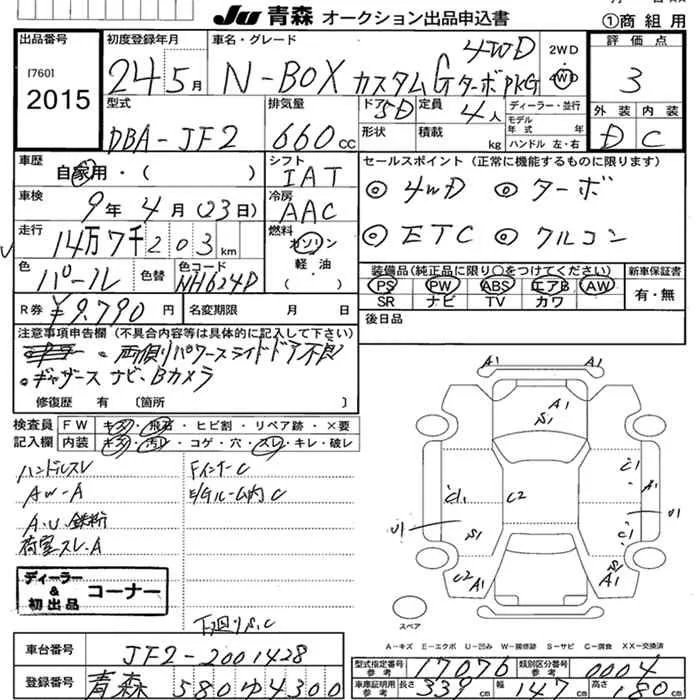 JU 青森 オークション出品申込書
①商組用
出品番号
[760]
2015
初度登録年月
24 5月
車名・グレード
N-BOX カスタムG ターボPKG
4WD
2WD
4WD
評価点
3
外装 内装
D C
型式
DBA-JF2
排気量
660cc
ドア 5D
形状
定員 4人
積載 kg
ディーラー・並行
モデル年式 年
ハンドル 左・右
車歴
自家用・( )
シフト
IAT
セールスポイント(正常に機能するものに限ります)
◎4WD ◎ターボ
◎ETC ◎クルコン
車検
9年 4月 (23日)
冷房
AAC
走行
14万7千203km
燃料
ガソリン
軽油
( )
色
パール
色替
色コード
NH624P
装備品(純正品に限り○をつけてください)
PS PW ABS エアB AW
SR ナビ TV カワ
新車保証書
有・無
R券 ¥9.790円
名変期限 月 日
後日品
注意事項申告欄(不具合内容等は具体的に記入して下さい)
両側リパワースライドドア不良
ギャザーズ ナビ、Bカメラ
修復歴 有 〔箇所 〕
検査員記入欄
FW キズ・飛石・ヒビ割・リペア跡・×要
内装 キズ・汚レ・コゲ・穴・スレ・キレ・破レ
ハンドルスレ
AW-A
A.U.鉄粉
荷室スレ.A
FインナーC
E/Gルーム内C
下廻りS.C
ディーラー & 初出品 コーナー
A1 A1
A1
S1
C1
C1
A1
C2
U1
U1
S1
C1
C2 A1
S1 A1
A1
スペア
A-キズ E-エクボ U-凹み W-補修跡 S-サビ C-腐食 XX-交換済
車台番号
JF2-2001428
登録番号
青森 580 ゆ 4300
型式指定番号 参考 17076
類別区分番号 参考 0004
車庫証明用 参考 長さ 339cm 幅 147cm 高さ 180cm